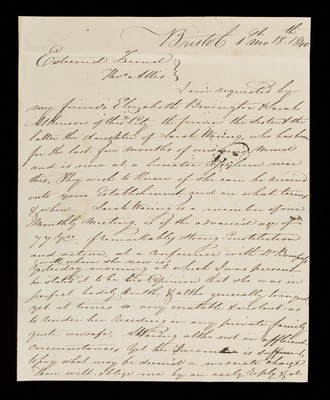 Bristol 8th mo 18th 1840
Esteemed Friend
Thos Allis
I am requested by
my friends Elizabeth Benington & Sarah
of this City the former the sister & the
latter the daughter of Sarah Waring, who has been
for the last few months of unsound mind
and is now at a lunatic Asylum near
this, they wish to know if she can be received
into your Establishment and on what terms
& when. Sarah Waring is a member of our
Monthly Meeting, is of the advanced age of
77 Years of remarkably strong Constitution
and active, at a Conference with Dr
with whom she now is
yesterday evening at which I was present
he stated it to be his Opinion that she was in
perfect bodily health, & altho generally tranquil
yet at times so very irritable & violent as
to render her residence in any private family
quite unsafe. S Waring altho not in affluent
circumstances yet her Income is sufficient
to pay what may be deemed a moderate charge
Thou wilt oblige me by an early reply & at